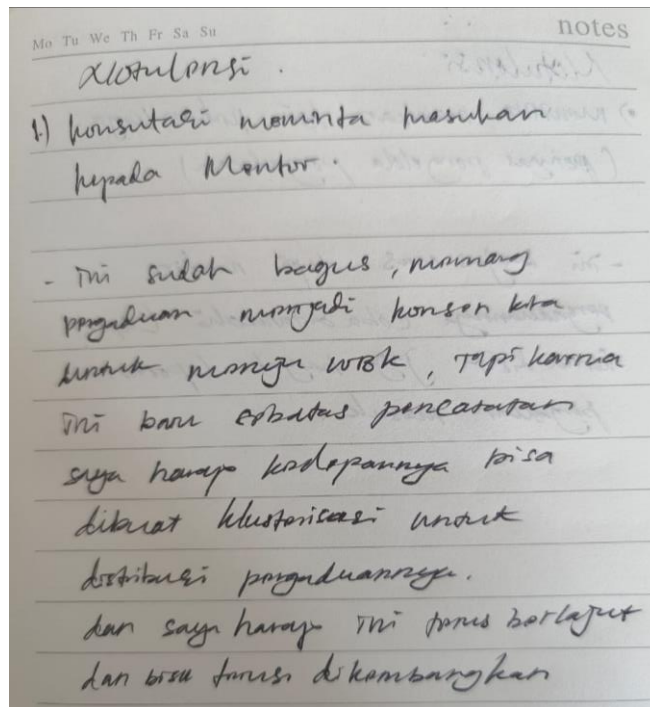 Mo Tu We Th Fr Sa Su
notes
Notulensi.
1.) konsultasi meminta masukan
kepada Mentor.
- ini sudah bagus, memang
pengaduan menjadi konsen kita
untuk menuju WBK, Tapi karena
ini baru sebatas pencatatan
saya harap kedepannya bisa
dibuat klusterisasi untuk
distribusi pengaduannya.
dan saya harap ini terus berlajut
dan bisa terus dikembangkan